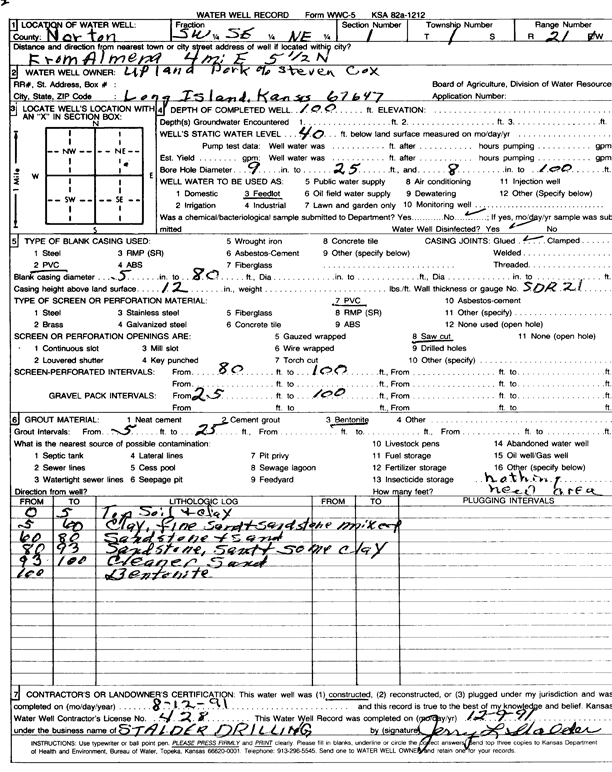 WATER WELL RECORD Form WWC-5 KSA 82a-1212
1 LOCATION OF WATER WELL: Fraction Section Number Township Number Range Number
County: Norton SW ¼ SE ¼ NE ¼ 1 T 1 S R 21 E/W
Distance and direction from nearest town or city street address of well if located within city?
From Almena 4 mi E 5 1/2 N
2 WATER WELL OWNER: Upland Pork % Steven Cox
RR#, St. Address, Box # : Board of Agriculture, Division of Water Resource
City, State, ZIP Code : Long Island, Kansas 67647 Application Number:
3 LOCATE WELL'S LOCATION WITH AN "X" IN SECTION BOX:
N
NW NE
W E
SW SE
S
1 Mile
4 DEPTH OF COMPLETED WELL 100 ft. ELEVATION:
Depth(s) Groundwater Encountered 1. ft. 2. ft. 3. ft.
WELL'S STATIC WATER LEVEL 40 ft. below land surface measured on mo/day/yr
Pump test data: Well water was ft. after hours pumping gpm
Est. Yield gpm: Well water was ft. after hours pumping gpm
Bore Hole Diameter 9 in. to 25 ft., and 8 in. to 100 ft.
WELL WATER TO BE USED AS: 5 Public water supply 8 Air conditioning 11 Injection well
1 Domestic 3 Feedlot 6 Oil field water supply 9 Dewatering 12 Other (Specify below)
2 Irrigation 4 Industrial 7 Lawn and garden only 10 Monitoring well
Was a chemical/bacteriological sample submitted to Department? Yes No ✓; If yes, mo/day/yr sample was sub
mitted Water Well Disinfected? Yes ✓ No
5 TYPE OF BLANK CASING USED: 5 Wrought iron 8 Concrete tile CASING JOINTS: Glued ✓ Clamped
1 Steel 3 RMP (SR) 6 Asbestos-Cement 9 Other (specify below) Welded
2 PVC 4 ABS 7 Fiberglass Threaded
Blank casing diameter 5 in. to 80 ft., Dia in. to ft., Dia in. to ft.
Casing height above land surface 12 in., weight lbs./ft. Wall thickness or gauge No. SDR 21
TYPE OF SCREEN OR PERFORATION MATERIAL: 7 PVC 10 Asbestos-cement
1 Steel 3 Stainless steel 5 Fiberglass 8 RMP (SR) 11 Other (specify)
2 Brass 4 Galvanized steel 6 Concrete tile 9 ABS 12 None used (open hole)
SCREEN OR PERFORATION OPENINGS ARE: 5 Gauzed wrapped 8 Saw cut 11 None (open hole)
1 Continuous slot 3 Mill slot 6 Wire wrapped 9 Drilled holes
2 Louvered shutter 4 Key punched 7 Torch cut 10 Other (specify)
SCREEN-PERFORATED INTERVALS: From 80 ft. to 100 ft., From ft. to ft.
From ft. to ft., From ft. to ft.
GRAVEL PACK INTERVALS: From 25 ft. to 100 ft., From ft. to ft.
From ft. to ft., From ft. to ft.
6 GROUT MATERIAL: 1 Neat cement 2 Cement grout 3 Bentonite 4 Other
Grout Intervals: From 5 ft. to 25 ft., From ft. to ft., From ft. to ft.
What is the nearest source of possible contamination: 10 Livestock pens 14 Abandoned water well
1 Septic tank 4 Lateral lines 7 Pit privy 11 Fuel storage 15 Oil well/Gas well
2 Sewer lines 5 Cess pool 8 Sewage lagoon 12 Fertilizer storage 16 Other (specify below)
3 Watertight sewer lines 6 Seepage pit 9 Feedyard 13 Insecticide storage nothing
Direction from well? How many feet? area
FROM TO LITHOLOGIC LOG FROM TO PLUGGING INTERVALS
0 5 Top Soil + clay
5 60 Clay, fine sand + sandstone mixed
60 80 Sandstone + sand
80 93 Sandstone, sand + some clay
93 100 Cleaner Sand
100 Bentonite
7 CONTRACTOR'S OR LANDOWNER'S CERTIFICATION: This water well was (1) constructed, (2) reconstructed, or (3) plugged under my jurisdiction and was
completed on (mo/day/year) 8-12-91 and this record is true to the best of my knowledge and belief. Kansas
Water Well Contractor's License No. 428 This Water Well Record was completed on (mo/day/yr) 12-9-91
under the business name of STALDER DRILLING by (signature) Jerry L Stalder
INSTRUCTIONS: Use typewriter or ball point pen. PLEASE PRESS FIRMLY and PRINT clearly. Please fill in blanks, underline or circle the correct answers. Send top three copies to Kansas Department
of Health and Environment, Bureau of Water, Topeka, Kansas 66620-0001. Telephone: 913-296-5545. Send one to WATER WELL OWNER and retain one for your records.